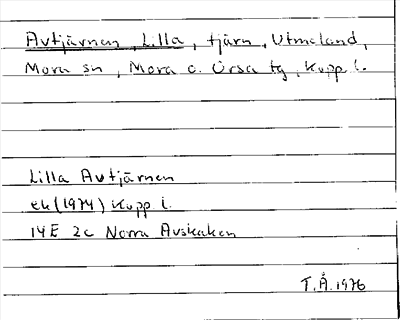 Avtjärnen, Lilla, tjärn, Utmeland,
Mora sn, Mora o. Orsa tg, Kopp l.
Lilla Avtjärnen
ek (1974) Kopp l.
14E 2c Norra Avskaken
T.Å. 1976